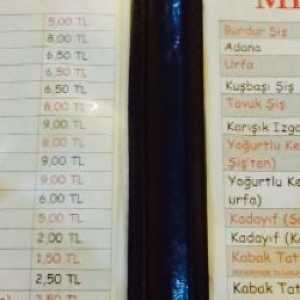 5,00 TL
8,00 TL
6,50 TL
6,50 TL
6,50 TL
8,00 TL
9,00 TL
8,00 TL
9,00 TL
9,00 TL
6,00 TL
5,00 TL
2,00 TL
1,50 TL
2,50 TL
Burdur Şiş
Adana
Urfa
Kuşbaşı Şiş
Tavuk Şiş
Karışık Izga
Yoğurtlu Ke
Şiş'ten)
Yoğurtlu Ke
urfa)
Kadayıf (S
Kadayıf (K
Kabak Tat
Kabak Tat